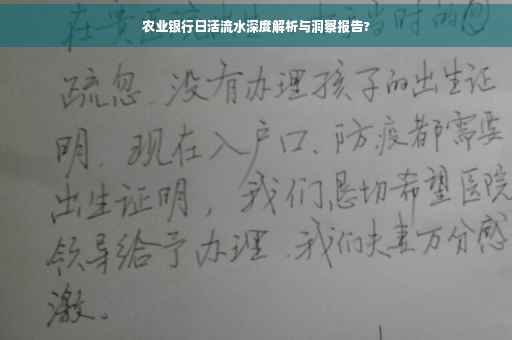 农业银行日活流水深度解析与洞察报告?
在
当时的
疏忽、没有办理孩子的出生证
明、现在入户口、防疫都需要
出生证明，我们恳切希望医院
领导给予办理、我们夫妻万分感
激。